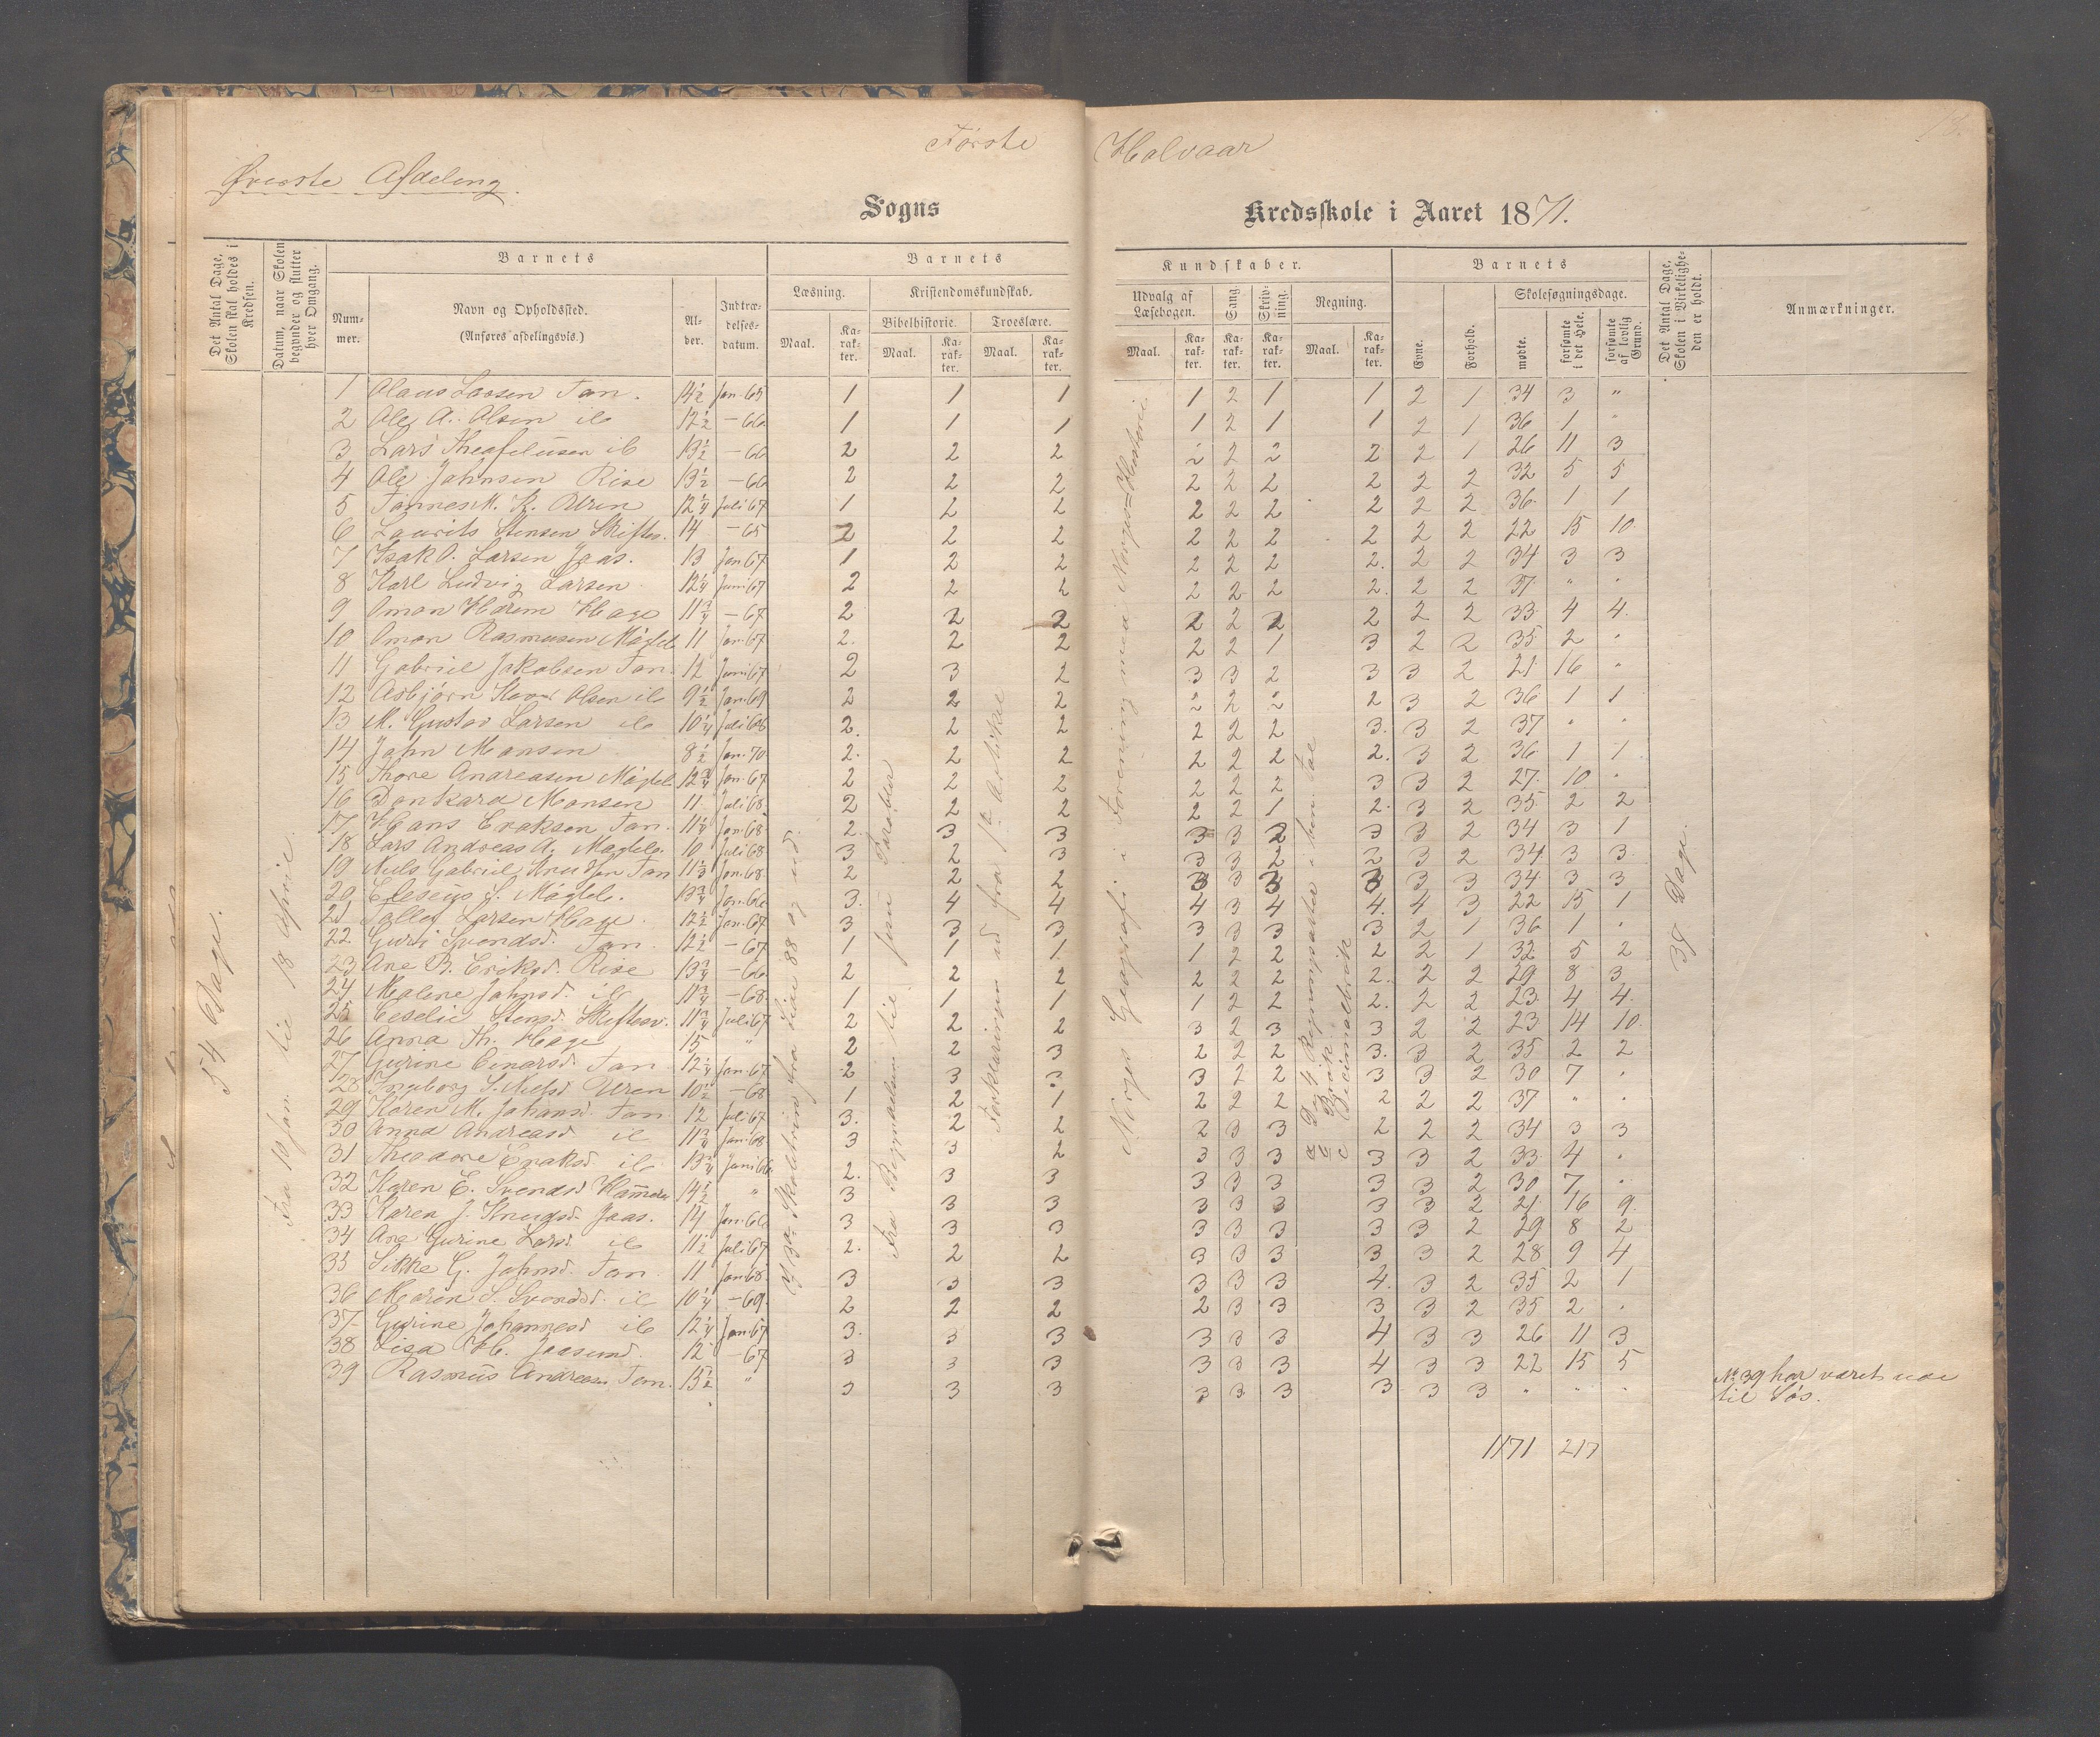 Første Halvaar
Øverste Afdeling.
Sogns Kredsskole i Aaret 1871.
Det Antal Dage, Skolen skal holdes i Kredsen.
Datum, naar Skolen begynder og slutter hver Omgang.
Barnets
Num-mer.
Navn og Opholdssted.
(Anføres afdelingsvis.)
Al-der.
Indtræ-delses-datum.
Barnets Kundskaber.
Læsning.
Maal.
Ka-rak-ter.
Kristendomskundskab.
Bibelhistorie.
Maal.
Ka-rak-ter.
Troeslære.
Maal.
Ka-rak-ter.
Udvalg af Læsebogen.
Maal.
Ka-rak-ter.
Sang.
Ka-rak-ter.
Skriv-ning.
Ka-rak-ter.
Regning.
Maal.
Ka-rak-ter.
Barnets
Evne.
Forhold.
Skolesøgningsdage.
mødte.
forsømte i det Hele.
forsømte af lovlig Grund.
Det Antal Dage, Skolen i Virkelighe-den er holdt.
Anmærkninger.
54 Dage.
Fra 10 Jan. til 18 April.
fra Side 88 og ud.
Fra Bergprædiken til Jesu Parabler
Forklaringen ud fra 1ste Artikel
Norges Geografi i Forening med Norges Historie
a De 4 Regningsarter i ben. Tal
b Brøk
c Decimalbrøk
38 Dage.
1 Olaus Larsen Tan. 14½ Jan. 65 1 1 1 1 2 1 1 2 1 34 3 "
2 Ole A. Olsen ib 12½ - 66 1 1 1 1 2 1 1 2 1 36 1 "
3 Lars Theofeliusen ib 13½ - 66 2 2 2 2 2 2 2 2 1 26 11 3
4 Ole Jahnsen Rise 13½ - 66 2 2 2 2 2 2 2 2 2 32 5 5
5 Tannes M. K. Uren 12¼ Juli 67 1 2 2 2 2 2 2 2 2 36 1 1
6 Laurits Stensen Skiftes. 14 - 65 2 2 2 2 2 2 2 2 2 22 15 10
7 Isak O. Larsen Jaas. 13 Jan 67 1 2 2 2 2 2 2. 2 2 34 3 3
8 Karl Ludvig Larsen 12¼ Juni 67 2 2 2 2 2 2 2. 2 2 37 " "
9 Oman Hage 11¾ - 67 2 2 2 2 2 2 2 2 2 33 4 4
10 Oman Rasmusen Mågtel 11 Jan. 67 2. 2 2 2 2 1 3 2 2 35 2 "
11 Gabriel Jakobsen Tan. 12 Juni 67 2 3 2 3 3 2 3 3 2 21 16 "
12 Asbjørn Olsen ib 9½ Jan. 69 2 2 2 2 2 2 2 3 2 36 1 1
13 M. Gustav Larsen ib 10¼ Juli 68 2. 2 2 2 2 2 3. 3 2 37 " "
14 Jahn Monsen 8½ Jan. 70 2. 2 2 2 2 2 2. 3 2 36 1 1
15 Thore Andreasen Mågtel 12¾ Jan. 67 2 2 2 2 2 2 3 3 2 27 10 "
16 Dankard Monsen 11 Juli 68 2 2 2 2 2 1 2. 3 2 35 2 2
17 Hans Eriksen Tan. 11¼ Jan. 68 2. 3 3 3 3 2 3 3 2 34 3 1
18 Lars Andreas A. Mågtele. 10 Juli 68 3 2 3 3 3 2 2 3 2 34 3 3
19 Nils Gabriel Knudsen Tan 11½ Jan. 68 2 2 2 3 3 3 2 3 3 34 3 3
20 Eleseus S. Mågtel. 13¾ Jan. 66 3. 4 4 4 3 4 4. 4 3 22 15 1
21 Tallef Larsen Hage. 12½ Jan. 67 3 3 3 3 3 3 3 2 1 36 1 "
22 Guri Svendsd. Tan. 12½ - 67 1 1 1 1 2 2 2 2 1 32 5 2
23 Ane B. Eriksd. Rise 13¾ - 66 2 2 2 2 2 2 2. 2 2 29 8 3
24 Malene Jahnsd. ib 11¾ - 68. 1 1 1 1 2 2 2. 2 2 23 4 4
25 Ceselie Stensd. Skiftesv. 11¾ Juli 67 2 2 2 3 2 3 3 2 2 23 14 10
26 Anna Th. Hage 15 " 2 2 3 2 2 2 3. 3 2 35 2 2
27 Gurine Einarsd. Tan 12¼ Jan. 67 2 3 3 3 2 2 3 3 2 30 7 "
28 Ingeborg S. Nilsd Uren 10½ - 68 1 2 1 2 2 2 2 2 2 37 " "
29 Karen M. Johansd. Tan 12 Juli 67 3. 2 2 2 3 3 2 2 2 34 3 3
30 Anna Andreasd ib 11¾ Jan. 68 3 3 2 3 3 3 3 3 2 33 4 "
31 Theodore Eriksd ib 13¾ Juni 66 2. 3 3 3 3 3 3 3 2 30 7 "
32 Karen E. Svendsd 14½ " 3 3 3 3 3 3 3 3 2 21 16 9
33 Karen J. Knudsd. Jaas. 14 Jan. 66 3 3 3 3 3 3 3 3 2 29 8 2
34 Ane Gurine Larsd. ib 11½ Juli 67 2. 2 2 3 3 3 3 3 2 28 9 4
35 Sikke G. Jahnsd. Tan 11 Jan. 68 3 3 3 3 3 3 4. 3 2 35 2 1
36 Maren S. Svendsd. ib 10¼ - 69. 2 2 2 2 3 3 3 3 2 35 2 "
37 Gurine Johannesd ib 12¼ Jan. 67 3. 3 3 3 3 3 4 3 3 26 11 3
38 Lisa H. Jaasund. 12 - 67 3 3 3 3 3 3 4 3 3 22 15 5
39 Rasmus Andreasen Tan. 15½ " 3 3 3 3 3 3 3 3 3 " " "
No 39 har været ude
til Søs.
1171 217